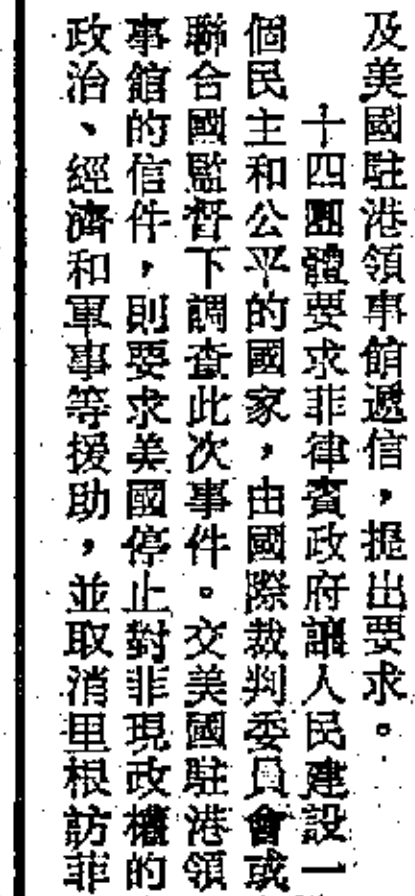 及美國駐港領事館遞信，提出要求。
十四團體要求菲律賓政府讓人民建設一
個民主和公平的國家，由國際裁判委員會或
聯合國監督下調查此次事件。交美國駐港領
事館的信件，則要求美國停止對菲現政權的
政治、經濟和軍事等援助，並取消里根訪菲